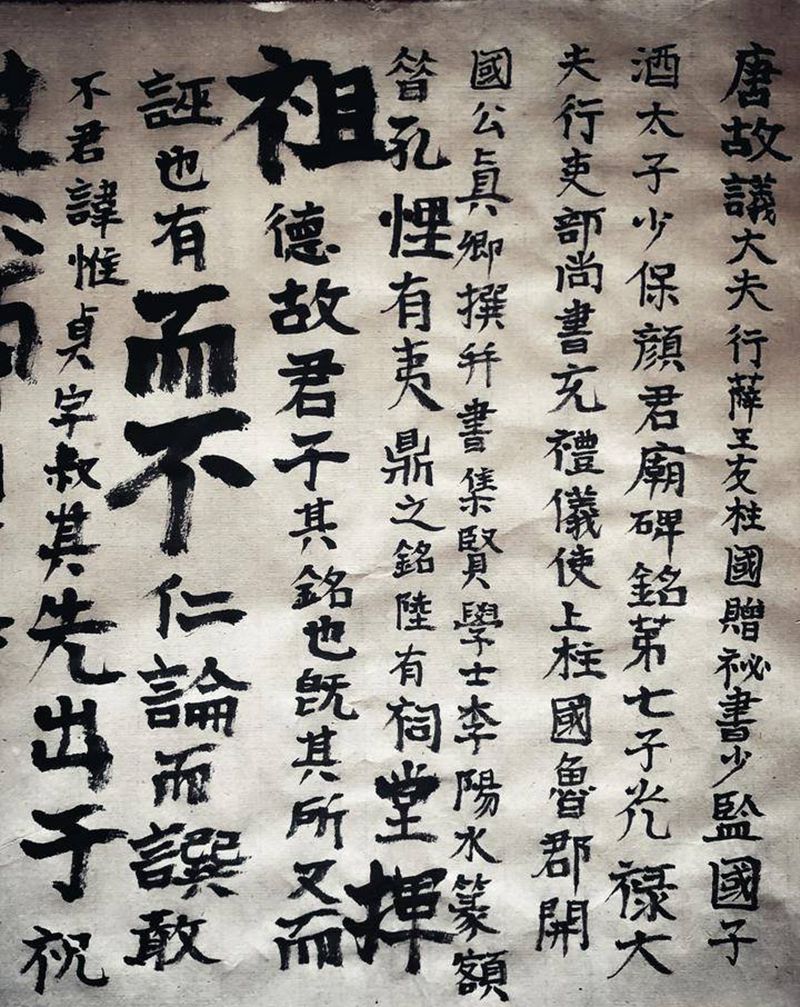 唐故議大夫行薛王友柱國贈祕書少監國子
酒太子少保顏君廟碑銘苐七子光祿大
夫行吏部尚書充禮儀使上柱國魯郡開
國公真卿撰并書集賢學士李陽冰篆額
昔孔悝有夷鼎之銘陸有祠堂揮
祖德故君子其銘也旣其所又而
誣也有而不仁論而譔敢
不君諱惟貞字叔其先出于祝